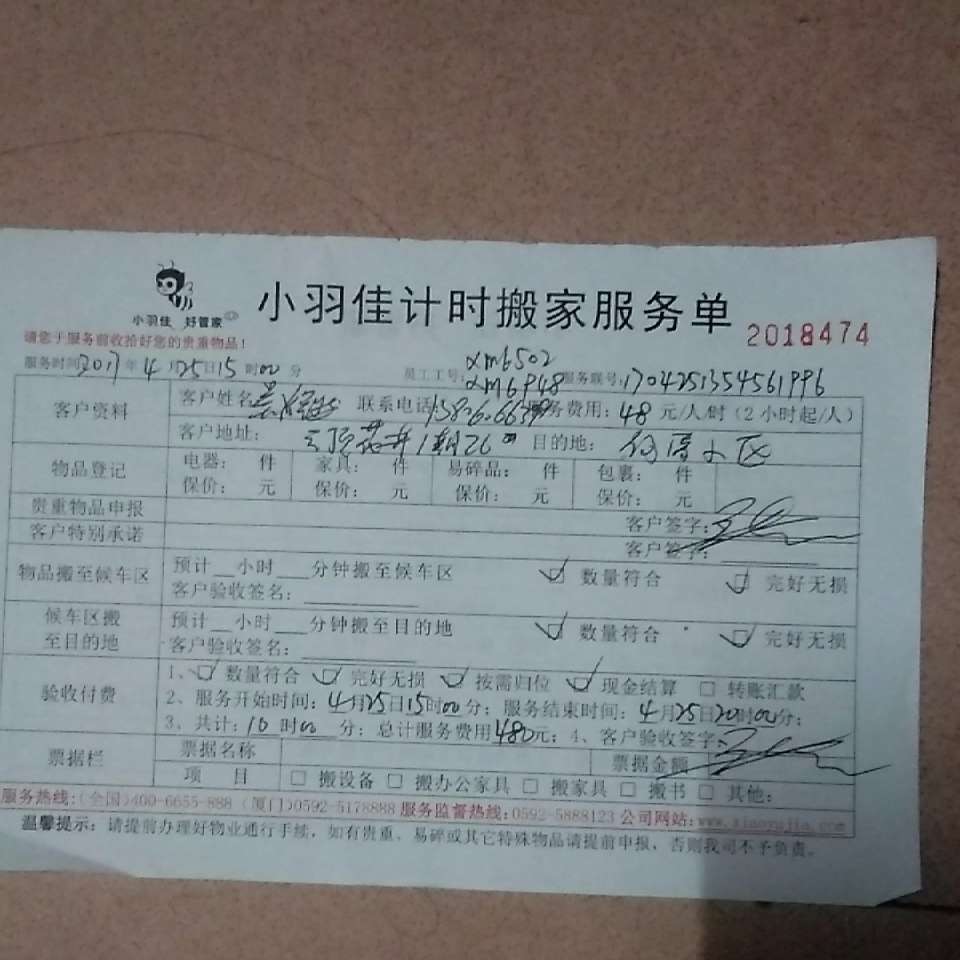 小羽佳 好管家
小羽佳计时搬家服务单
2018474
请您于服务前收拾好您的贵重物品！
服务时间2017年4月25日15时00分
员工工号: xm6502
xm6948
服务联号: 1704251354561996
客户资料
客户姓名 联系电话: 服务费用: 48元/人/时（2小时起/人）
客户地址: 目的地: 小区
物品登记
电器: 件 家具: 件 易碎品: 件 包裹: 件
保价: 元 保价: 元 保价: 元 保价: 元
贵重物品申报
客户签字:
客户特别承诺
客户签字:
物品搬至候车区
预计__小时___分钟搬至候车区 数量符合 完好无损
客户验收签名:
候车区搬
至目的地
预计__小时___分钟搬至目的地 数量符合 完好无损
客户验收签名:
验收付费
1、 数量符合 完好无损 按需归位 现金结算 转账汇款
2、服务开始时间: 4月25日15时00分; 服务结束时间: 4月25日20时00分;
3、共计: 10时00分; 总计服务费用480元; 4、客户验收签字:
票据栏
票据名称 票据金额
项 目 搬设备 搬办公家具 搬家具 搬书 其他:
服务热线:(全国)400-6655-888 (厦门)0592-5178888 服务监督热线:0592-5888123 公司网站:www.xiaoyujia.com
温馨提示: 请提前办理好物业通行手续，如有贵重、易碎或其它特殊物品请提前申报，否则我司不予负责。